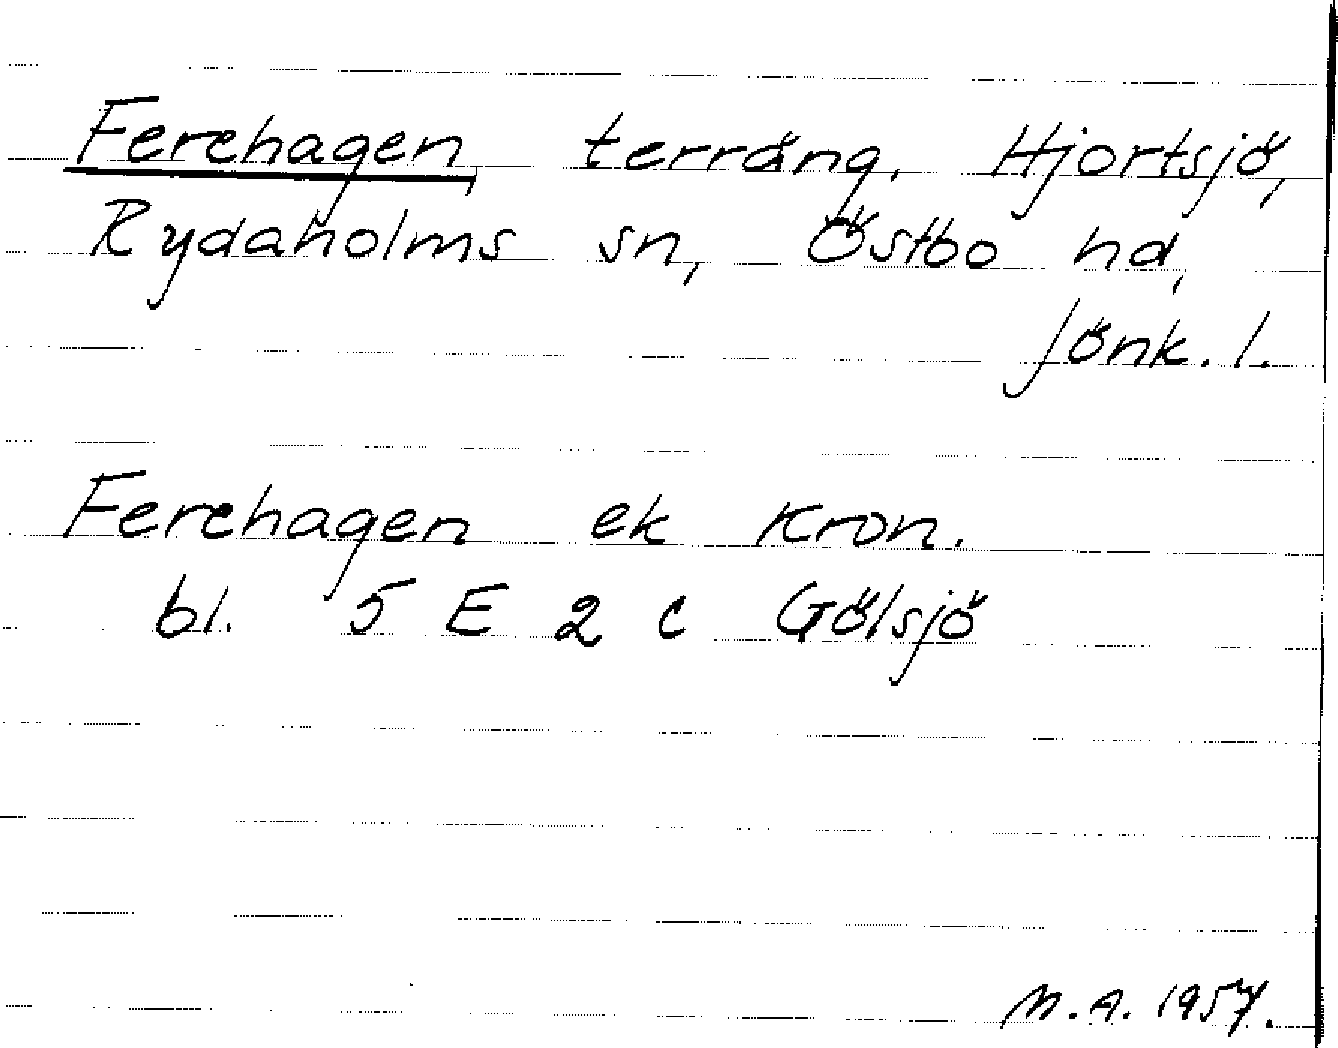 Ferehagen, terräng, Hjortsjö,
Rydaholms sn, Östbo hd,
Jönk. l.
Ferehagen ek Kron.
bl. 5 E 2 c Gölsjö
M.A. 1957.